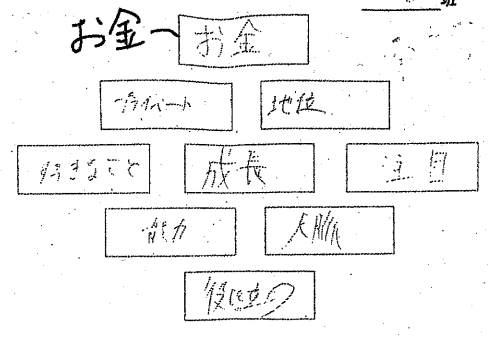 班
お金〜 お金
プライベート 地位
好きなこと 成長 注目
能力 人脈
役に立つ